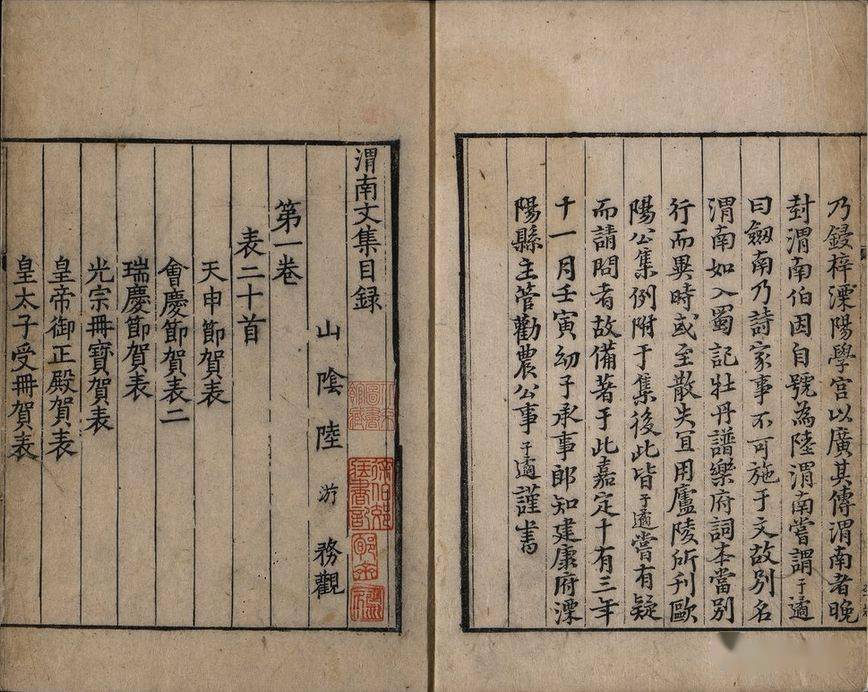 乃鋟梓溧陽學宮以廣其傳渭南者晚
封渭南伯因自號為陸渭南嘗謂子遹
曰劔南乃詩家事不可施于文故別名
渭南如入蜀記牡丹譜樂府詞本當別
行而異時或至散失宜用廬陵所刊歐
陽公集例附于集後此皆子遹嘗有疑
而請問者故備著于此嘉定十有三年
十一月壬寅幼子承事郎知建康府溧
陽縣主管勸農公事子遹謹書
渭南文集目録
山陰陸游務觀
第一卷
表二十首
天申節賀表
會慶節賀表二
瑞慶節賀表
光宗冊寶賀表
皇帝御正殿賀表
皇太子受冊賀表